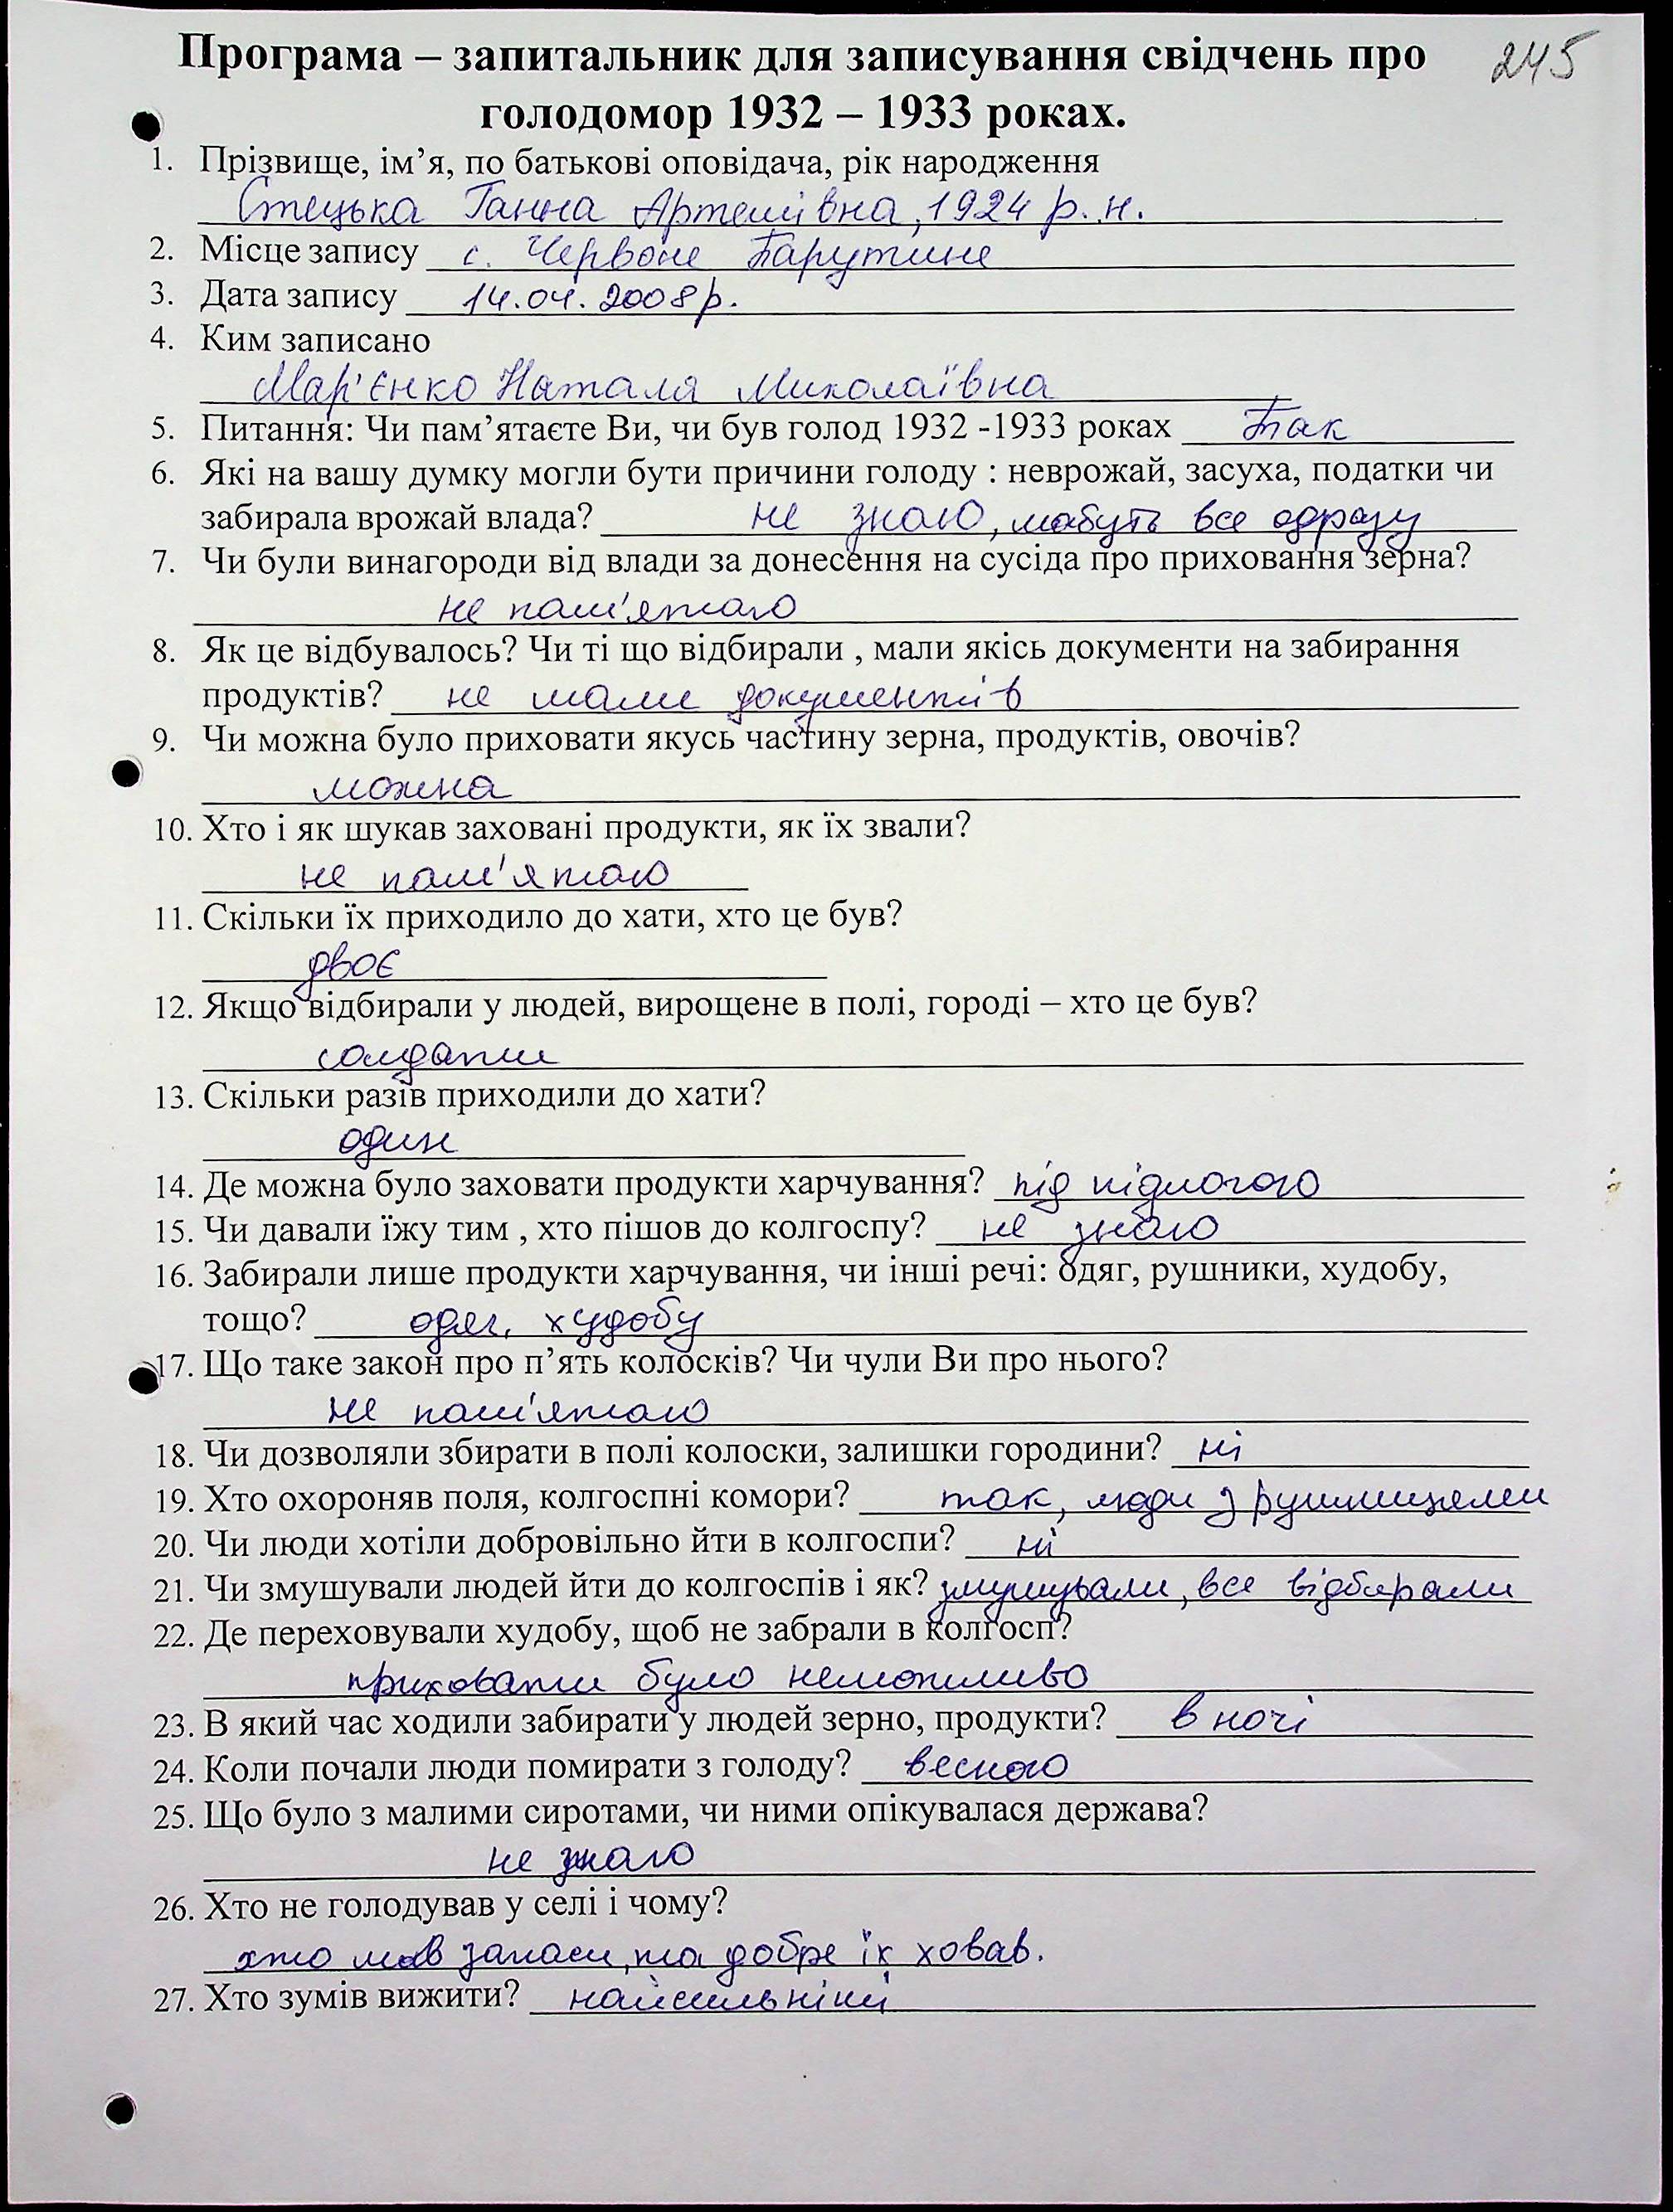 245
Програма – запитальник для записування свідчень про
голодомор 1932 – 1933 роках.
1. Прізвище, ім’я, по батькові оповідача, рік народження
Стецька Ганна Артемівна, 1924 р.н.
2. Місце запису с. Червоне Тарутине
3. Дата запису 14.04.2008р.
4. Ким записано
Мар'єнко Наталя Миколаївна
5. Питання: Чи пам’ятаєте Ви, чи був голод 1932 -1933 роках Так
6. Які на вашу думку могли бути причини голоду : неврожай, засуха, податки чи
забирала врожай влада? не знаю, мабуть все одразу
7. Чи були винагороди від влади за донесення на сусіда про приховання зерна?
не пам'ятаю
8. Як це відбувалось? Чи ті що відбирали , мали якісь документи на забирання
продуктів? не мали документів
9. Чи можна було приховати якусь частину зерна, продуктів, овочів?
можна
10. Хто і як шукав заховані продукти, як їх звали?
не пам'ятаю
11. Скільки їх приходило до хати, хто це був?
двоє
12. Якщо відбирали у людей, вирощене в полі, городі – хто це був?
солдати
13. Скільки разів приходили до хати?
один
14. Де можна було заховати продукти харчування? під підлогою
15. Чи давали їжу тим , хто пішов до колгоспу? не знаю
16. Забирали лише продукти харчування, чи інші речі: одяг, рушники, худобу,
тощо? одяг, худобу
17. Що таке закон про п’ять колосків? Чи чули Ви про нього?
не пам'ятаю
18. Чи дозволяли збирати в полі колоски, залишки городини? ні
19. Хто охороняв поля, колгоспні комори? так, люди з рушницями
20. Чи люди хотіли добровільно йти в колгоспи? ні
21. Чи змушували людей йти до колгоспів і як? змушували, все відбирали
22. Де переховували худобу, щоб не забрали в колгосп?
приховати було неможливо
23. В який час ходили забирати у людей зерно, продукти? в ночі
24. Коли почали люди помирати з голоду? весною
25. Що було з малими сиротами, чи ними опікувалася держава?
не знаю
26. Хто не голодував у селі і чому?
хто мав запаси, та добре їх ховав.
27. Хто зумів вижити? найсильніші